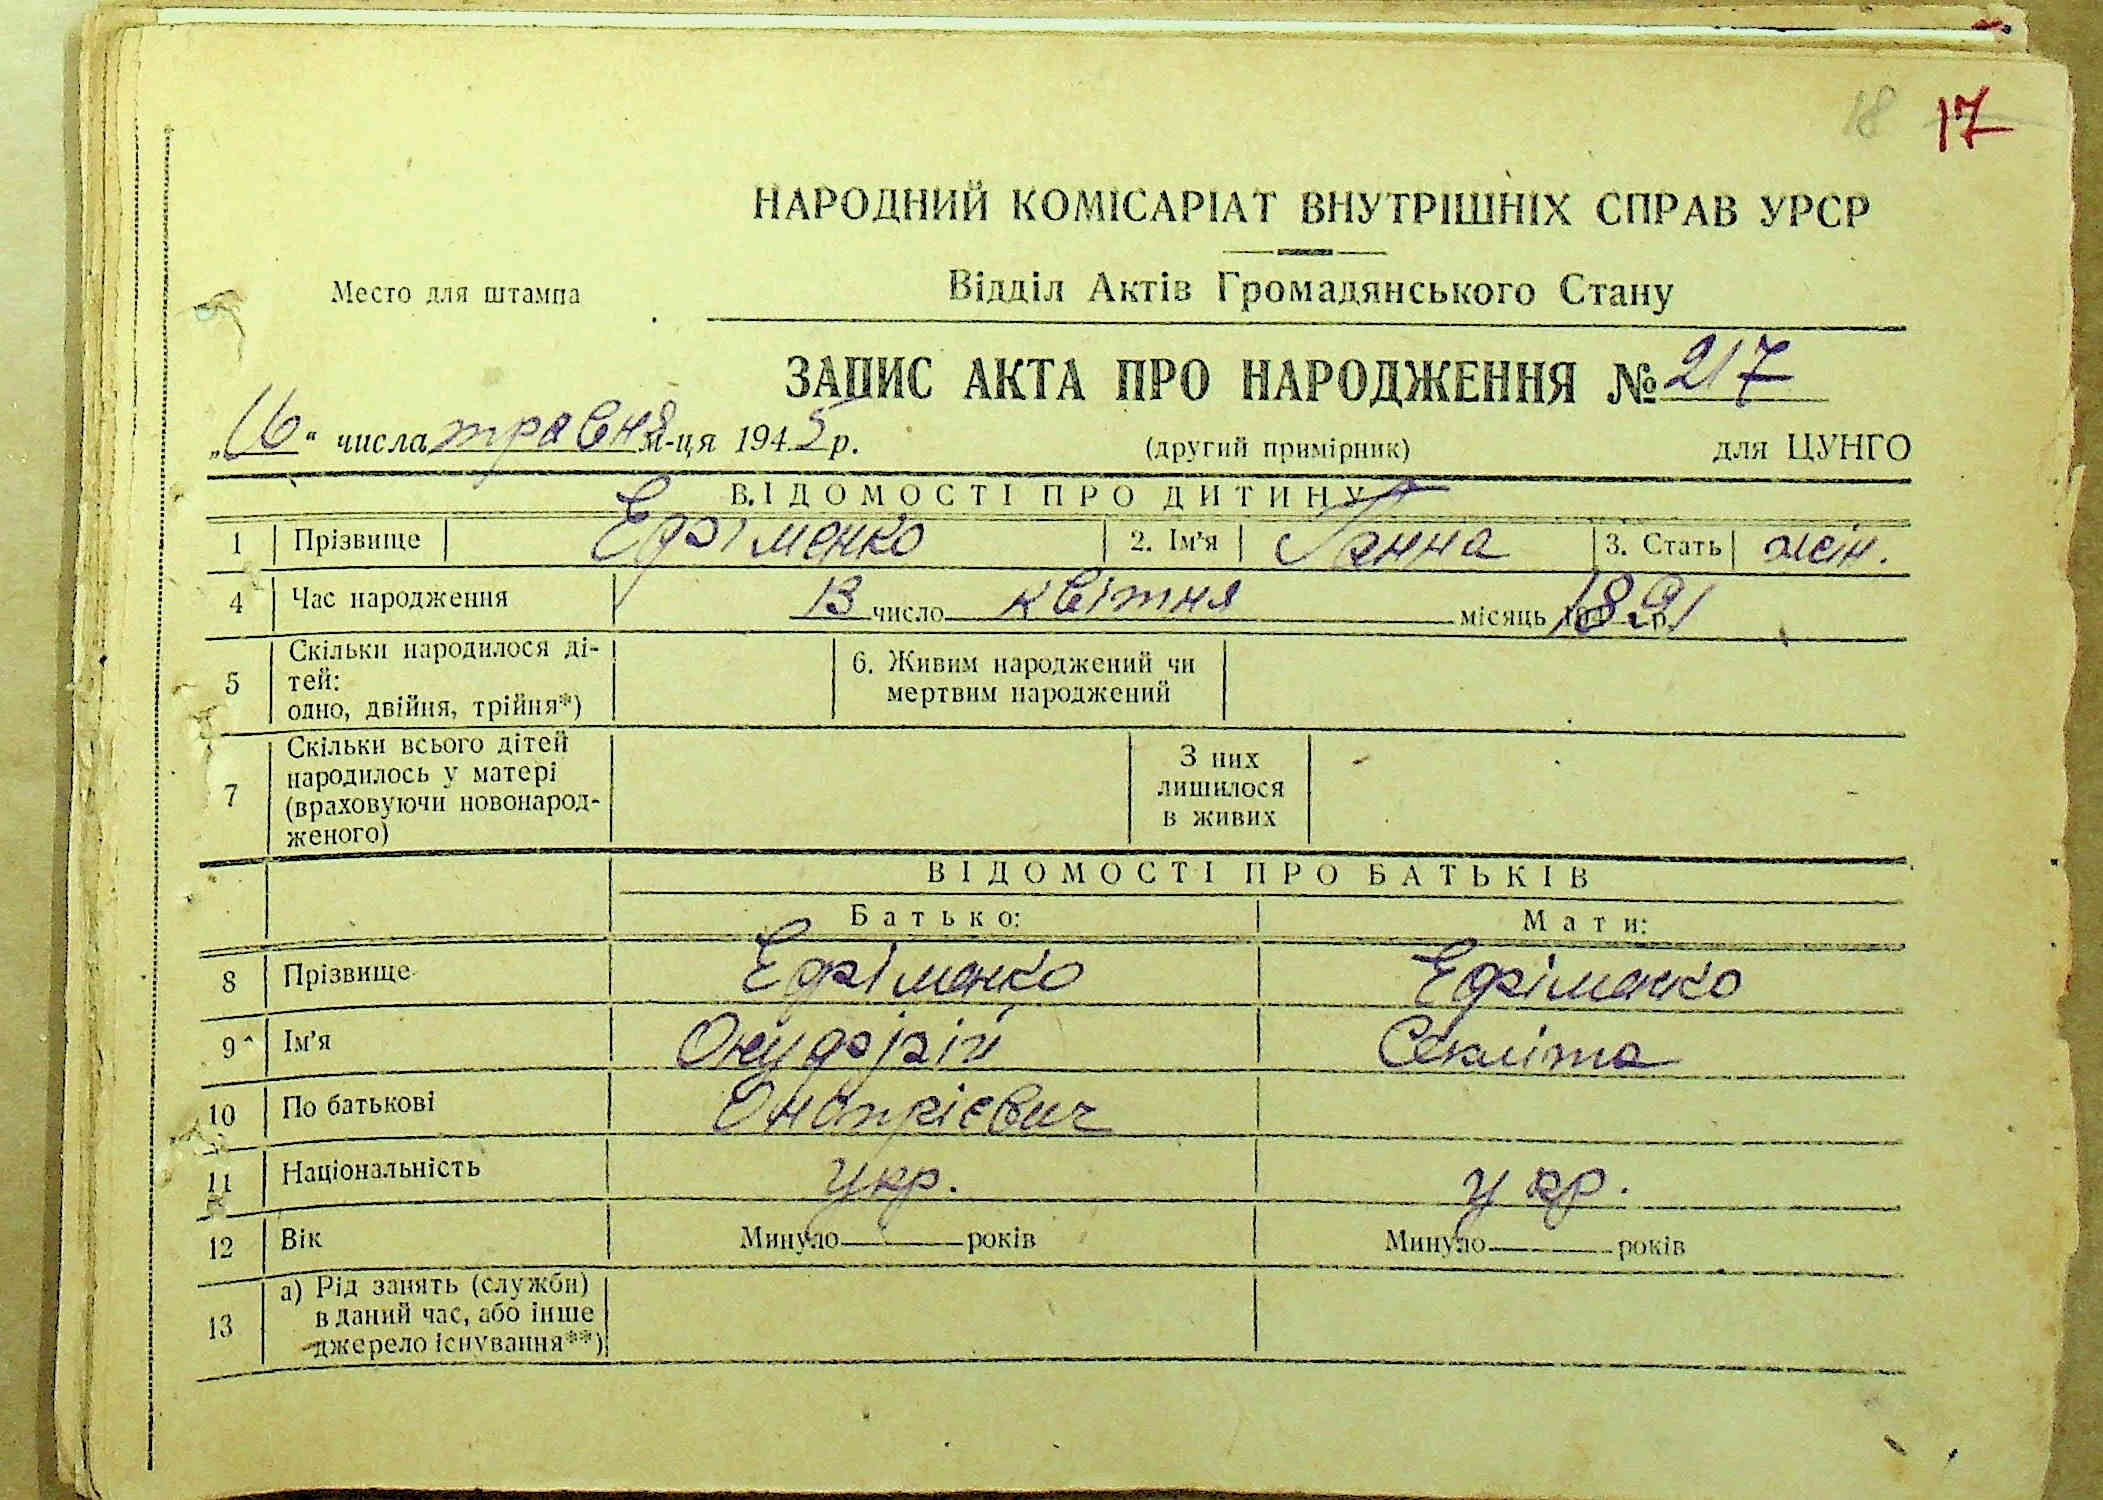 18 17
НАРОДНИЙ КОМІСАРІАТ ВНУТРІШНІХ СПРАВ УРСР
Место для штампа
Відділ Актів Громадянського Стану
ЗАПИС АКТА ПРО НАРОДЖЕННЯ № 217
„16“ числа травня м-ця 1945 р. (другий примірник) для ЦУНГО
ВІДОМОСТІ ПРО ДИТИНУ
1 Прізвище Ефіменко 2. Ім'я Ганна 3. Стать жін.
4 Час народження 13 число квітня місяць 1891
5 Скільки народилося ді-
тей:
одно, двійня, трійня*)
6. Живим народжений чи
мертвим народжений
7 Скільки всього дітей
народилось у матері
(враховуючи новонарод-
женого)
З них
лишилося
в живих
ВІДОМОСТІ ПРО БАТЬКІВ
Батько: Мати:
8 Прізвище Ефіменко Ефіменко
9 Ім'я Онуфрій Секліта
10 По батькові
11 Національність укр. укр.
12 Вік Минуло років Минуло років
13 а) Рід занять (служби)
в даний час, або інше
джерело існування**)